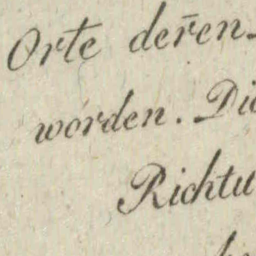 Orte deren
worden. Die
Richtu